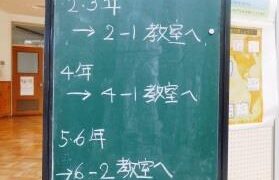 2・3年
→2-1教室へ
4年
→4-1教室へ
5・6年
→6-2教室へ